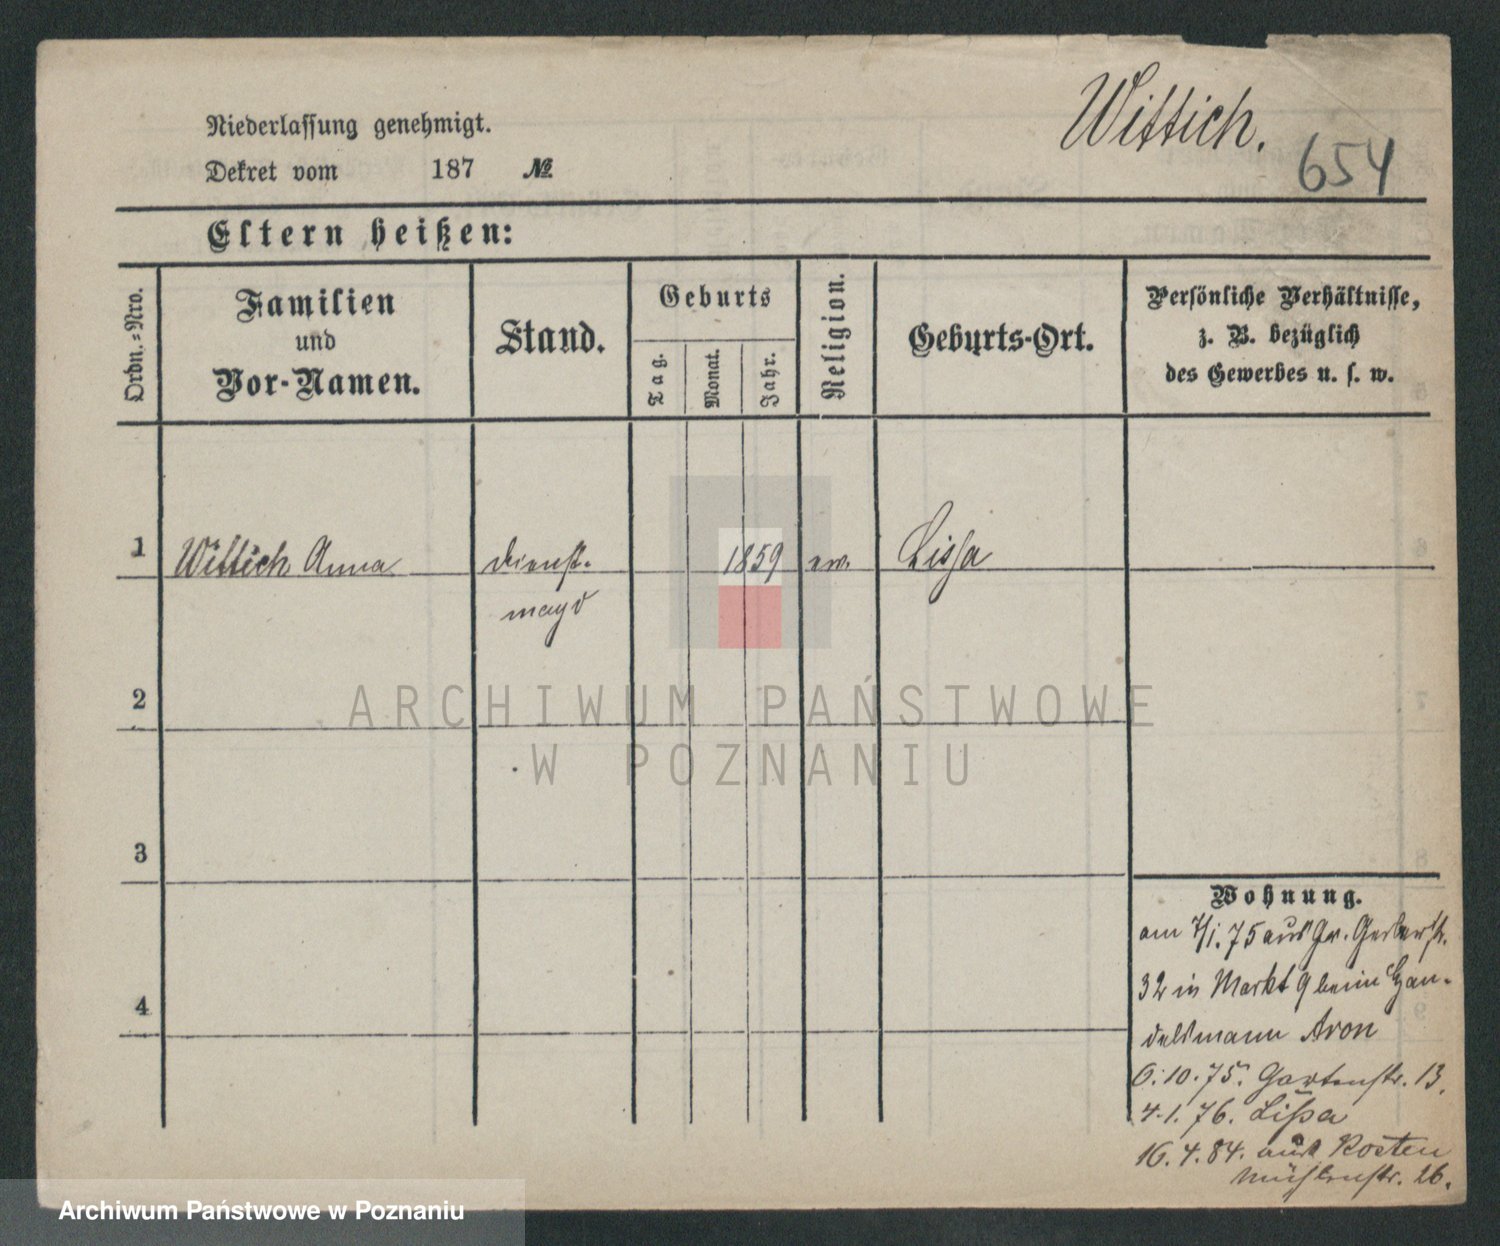 Wittich.
654
Niederlassung genehmigt.
Dekret vom 187 №
Eltern heißen:
Ordn.-Nro.
Familien
und
Vor-Namen.
Stand.
Geburts
Tag.
Monat.
Jahr.
Religion.
Geburts-Ort.
Persönliche Verhältnisse,
z. B. bezüglich
des Gewerbes u. s. w.
1 Wittich Anna Dienst- 1859 ev. Lissa
magd
2
3
4
Wohnung.
am 7/1. 75 aus Gr. Gerberstr.
32 in Markt 9 beim Han-
delsmann Aron
6.10.75. Gartenstr. 13.
4.1.76. Lißa
16.4.84. aus Kosten
Mühlenstr. 26.
ARCHIWUM PAŃSTWOWE
W POZNANIU
Archiwum Państwowe w Poznaniu